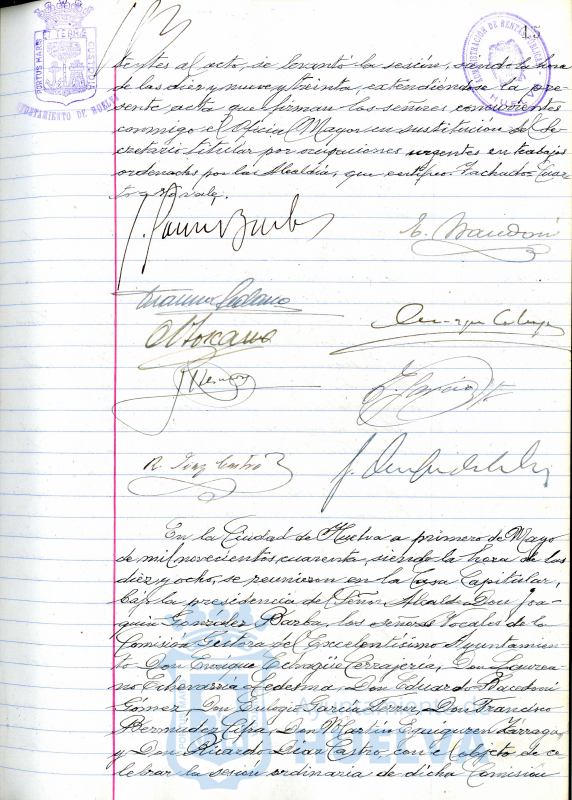 PORTUS MARIS ET TERRAE CUSTODIA
AYUNTAMIENTO DE HUELVA
ADMINISTRACIÓN DE RENTAS PUBLICAS
HUELVA
sentes al acto, se levantó la sesión, siendo la hora
de las diez y nueve y treinta, extendiéndose la pre-
sente acta que firman los señores concurrentes
conmigo el Oficial Mayor en sustitución del Se-
cretario titular por ocupaciones urgentes en trabajos
ordenados por la Alcaldía, que certifico. Tachado: Cuar-
to y vale.
E. Bacedoni
R. Diaz Castro
En la Ciudad de Huelva a primero de Mayo
de mil novecientos cuarenta, siendo la hora de las
diez y ocho, se reunieron en la Casa Capitular,
bajo la presidencia del Señor Alcalde Don Joa-
quin González Barba, los señores Vocales de la
Comisión Gestora del Excelentísimo Ayuntamien-
to Don Enrique Echagüe Cerrajería, Don Laurea-
no Echevarria Ledesma, Don Eduardo Bacedoni
Gómez, Don Eulogio García Ferrer, Don Francisco
Bermudez Cipa, Don Martín Equiguren Zárraga,
y Don Ricardo Diaz Castro con el objeto de ce-
lebrar la sesión ordinaria de dicha Comisión
Ayuntamiento de
HUELVA